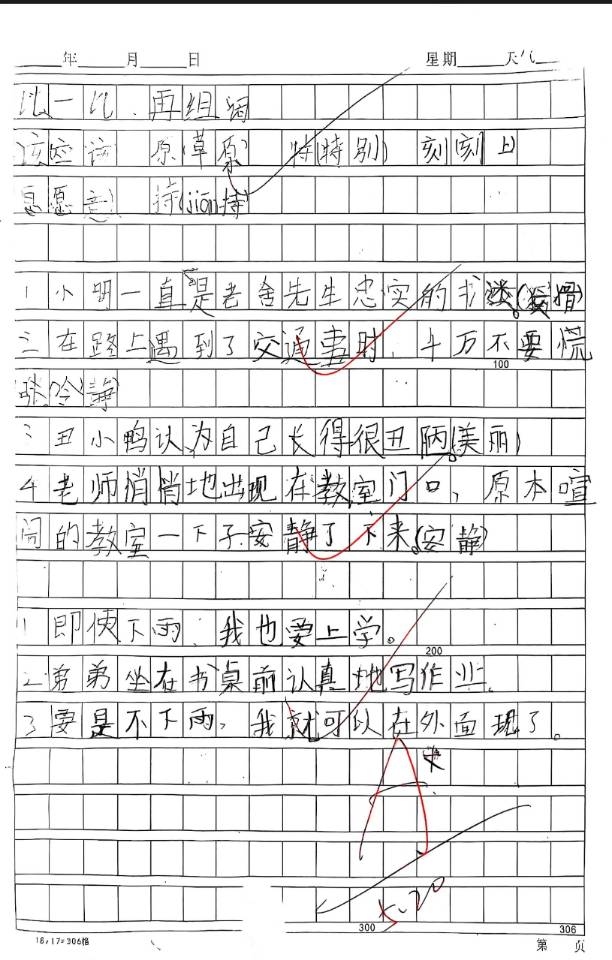 年 月 日 星期 天气
比一比.再组词
该应该 原(草原) 特(特别) 刻(刻上)
愿愿意) 持(jiān持)
1小明一直是老舍先生忠实的书迷。
三在路上遇到了交通事时,千万不要慌 100
张冷静
三丑小鸭认为自己长得很丑陋。(美丽)
4老师悄悄地出现在教室门口,原本喧
闹的教室一下子安静了下来。(安静)
1即使下雨,我也要上学。
200
2弟弟坐在书桌前认真地写作业.
3要是不下雨,我就可以在外面玩了。
A
5.20
300 306
18×17=306格 第 页